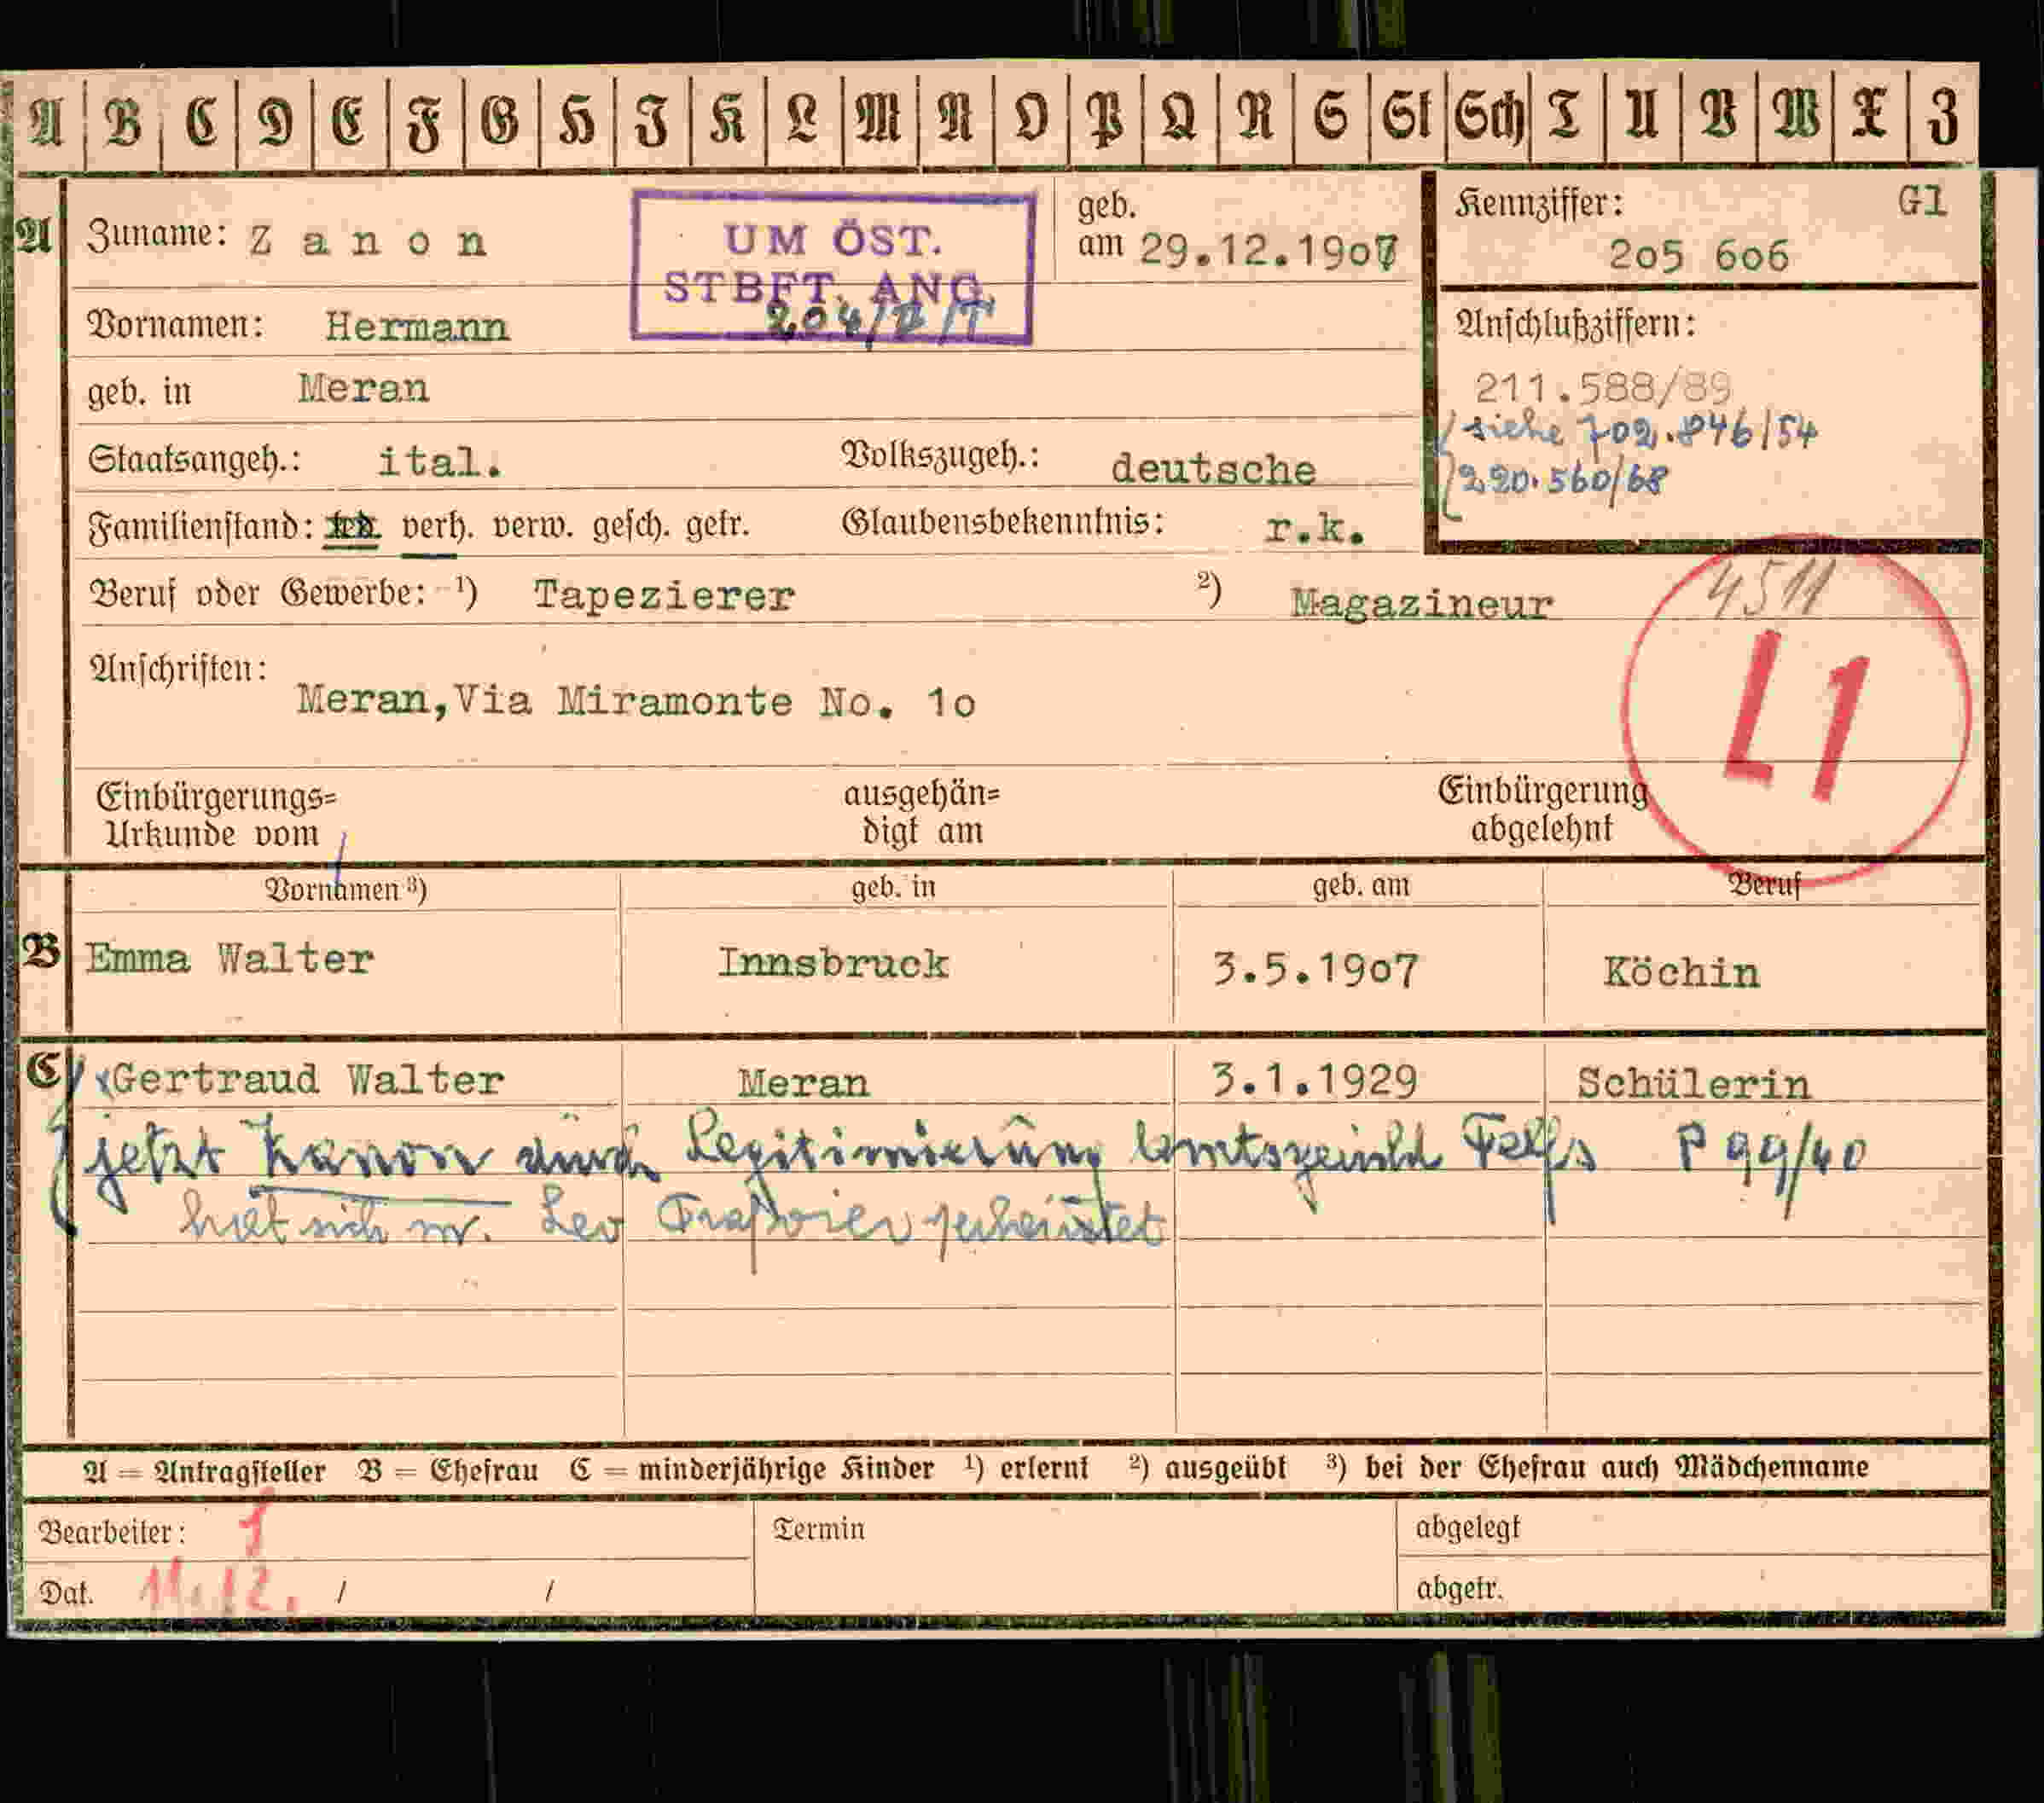 A B C D E F G H I K L M N O P Q R S St Sch T U V W X Z
A Zuname: Zanon
UM ÖST.
STBFT. ANG.
204/II/T
geb.
am 29.12.1907
Kennziffer: Gl
205 606
Vornamen: Hermann
Anschlußziffern:
211.588/89
siehe 702.846/54
220.560/68
geb. in Meran
Staatsangeh.: ital. Volkszugeh.: deutsche
Familienstand: verh. verw. gesch. getr. Glaubensbekenntnis: r.k.
Beruf oder Gewerbe: ¹) Tapezierer ²) Magazineur
4511
L1
Anschriften:
Meran, Via Miramonte No. 10
Einbürgerungs=
Urkunde vom
ausgehän=
digt am
Einbürgerung
abgelehnt
Vornamen ³) geb. in geb. am Beruf
B Emma Walter Innsbruck 3.5.1907 Köchin
C Gertraud Walter Meran 3.1.1929 Schülerin
jetzt Zanon durch Legitimierung P 99/40
hat sich m. Leo
A = Antragsteller B = Ehefrau C = minderjährige Kinder ¹) erlernt ²) ausgeübt ³) bei der Ehefrau auch Mädchenname
Bearbeiter: 1
Termin
abgelegt
Dat. 11.12. / /
abgetr.